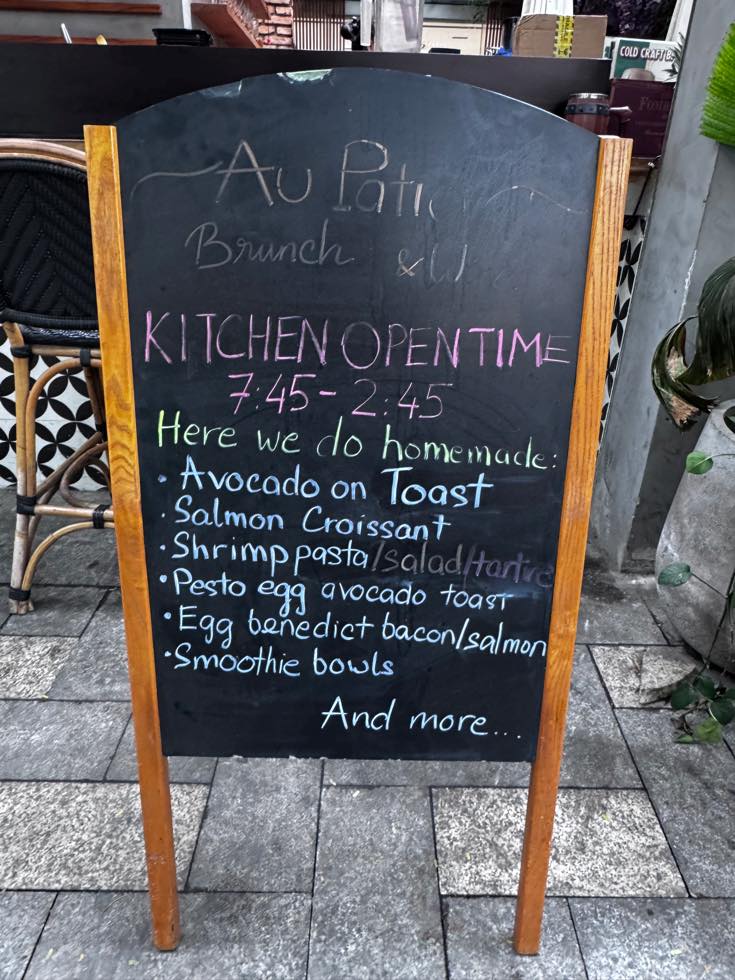 COLD CRAFT B
Au
Brunch &
KITCHEN OPEN TIME
7:45 - 2:45
Here we do homemade:
· Avocado on Toast
· Salmon Croissant
· Shrimp pasta/salad/tartine
· Pesto egg avocado toast
· Egg benedict bacon/salmon
· Smoothie bowls
And more...